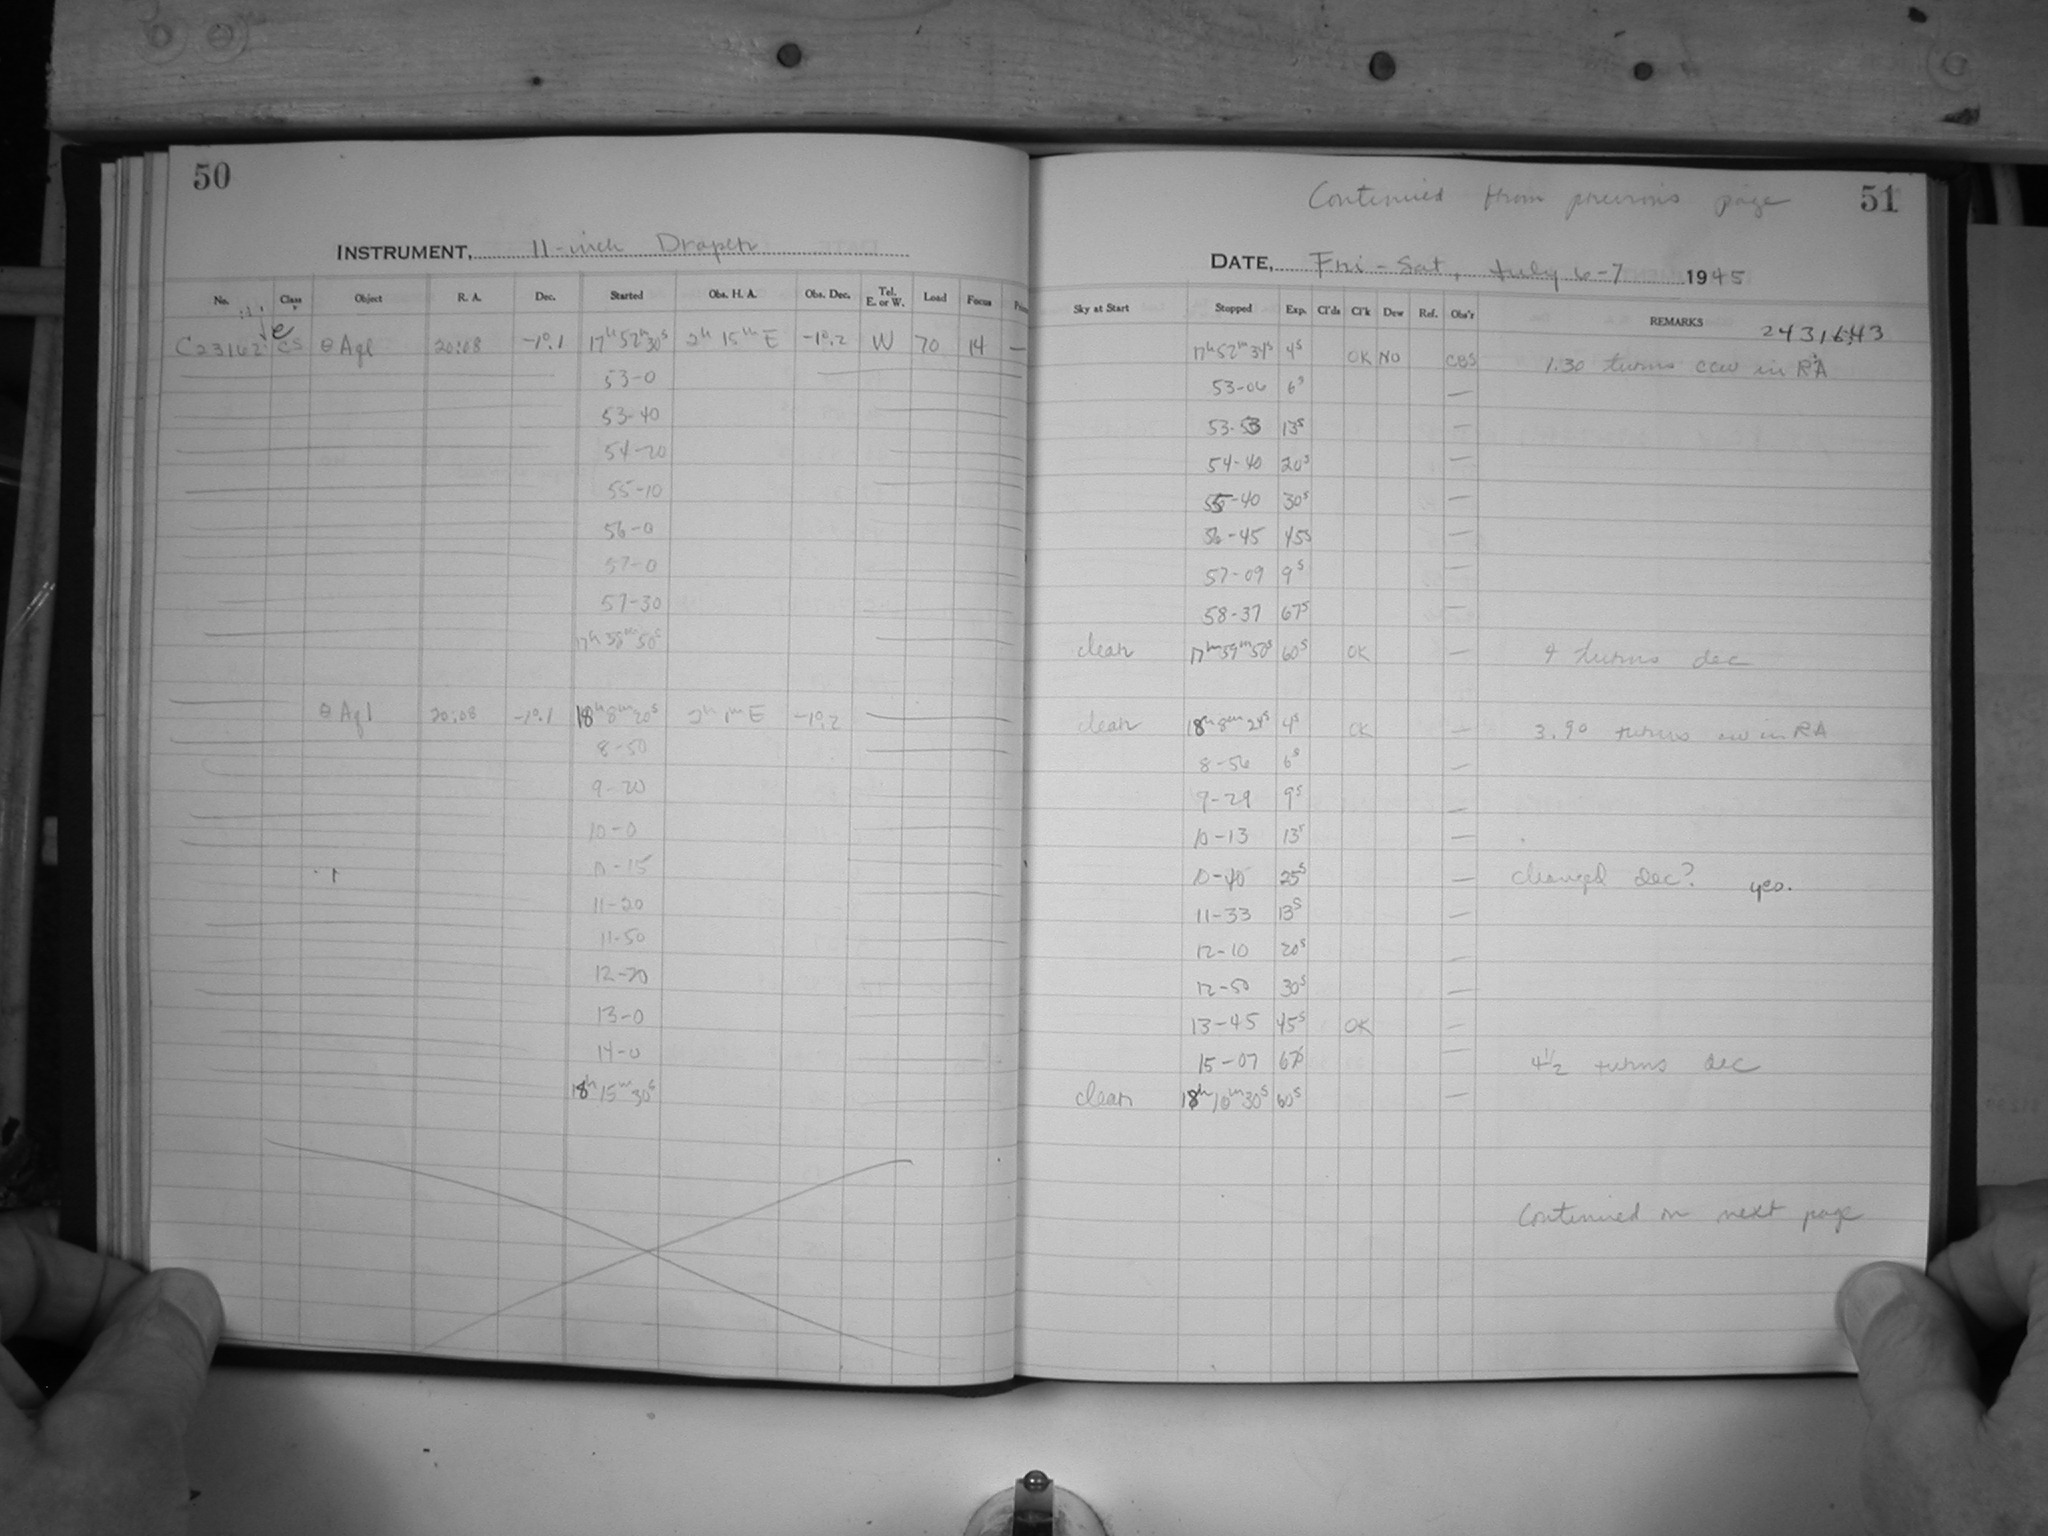 50
INSTRUMENT, 11-inch Draper
No. Class Object R. A. Dec. Started Obs. H. A. Obs. Dec. Tel. E. or W. Load Focus
C23162 e CS θ Aql 20:08 -1°.1 17h 52m 30s 2h 15m E -1°.2 W 70 14 —
53-0
53-40
54-20
55-10
56-0
57-0
57-30
17h 58m 50s
θ Aql 20:08 -1°.1 18h 8m 20s 2h 1m E -1°.2
8-50
9-20
10-0
10-15
11-20
11-50
12-20
13-0
14-0
18h 15m 30s
Continued from previous page 51
DATE, Fri-Sat, July 6-7 1945
Sky at Start Stopped Exp. Cl'ds Cl'k Dew Ref. Obs'r REMARKS 2431643
17h 52m 34s 4s OK NO CBS 1.30 turns ccw in RA
53-06 6s —
53-53 13s —
54-40 20s —
55-40 30s —
56-45 45s —
57-09 9s —
58-37 67s —
clear 17h 59m 50s 60s OK — turns dec
clear 18h 8m 24s 4s OK — 3.90 turns cw in RA
8-56 6s —
9-29 9s —
10-13 13s —
10-40 25s — changed dec? yes.
11-33 13s —
12-10 20s —
12-50 30s —
13-45 45s OK —
15-07 67s — 4½ turns dec
clear 18h 16m 30s 60s —
Continued on next page